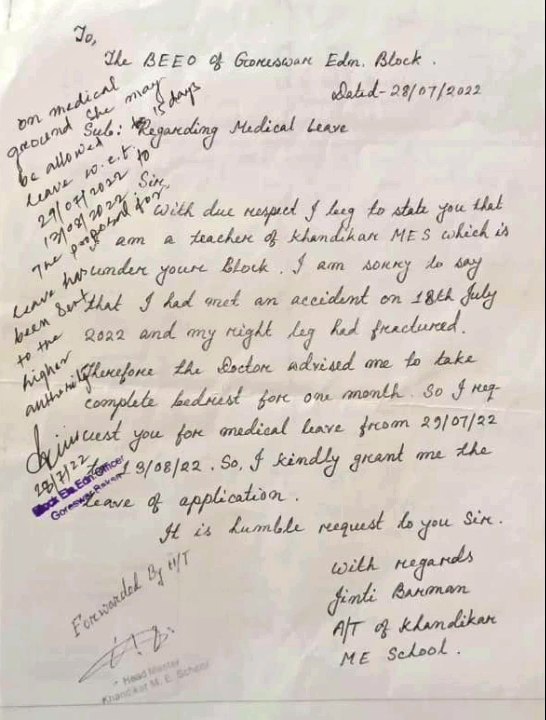 To,
The BEEO of Goreswar Edn. Block.
Dated- 28/07/2022
Sub: Regarding Medical Leave
Sir,
With due respect I beg to state you that
I am a teacher of Khandikar MES which is
under youre block. I am sorry to say
that I had met an accident on 18th July
2022 and my right leg had fractured.
Therefore the Doctor advised me to take
complete bedrest for one month. So I req-
uest you for medical leave from 29/07/22
to 13/08/22. So, I kindly grant me the
leave of application.
It is humble request to you Sir.
With regards
Jinti Barman
A/T of Khandikar
ME School.
on medical
ground She may
be allowed 15 days
leave w.e.t.
29/07/2022 to
12/08/2022
The proposal for
leave has
been Sent
to the
higher
authority
28/7/22
Block Ele. Edn. Officer
Goreswar
Forwarded By H/T
Head Master
Khandikar M. E. School